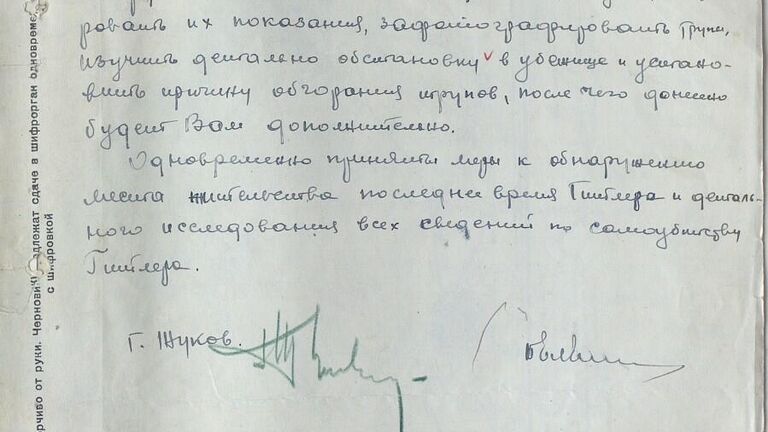 ровать их показания, зафотографировать трупы,
изучить детально обстановку в убежище и устано-
вить причину обгорания трупов, после чего донесено
будет Вам дополнительно.
Одновременно приняты меры к обнаружению
места жительства последнее время Гитлера и деталь-
ного исследования всех сведений по самоубийству
Гитлера.
Г. Жуков.
рчиво от руки. Чернови длежат сдаче в шифрорган одновреме
с шифровкой